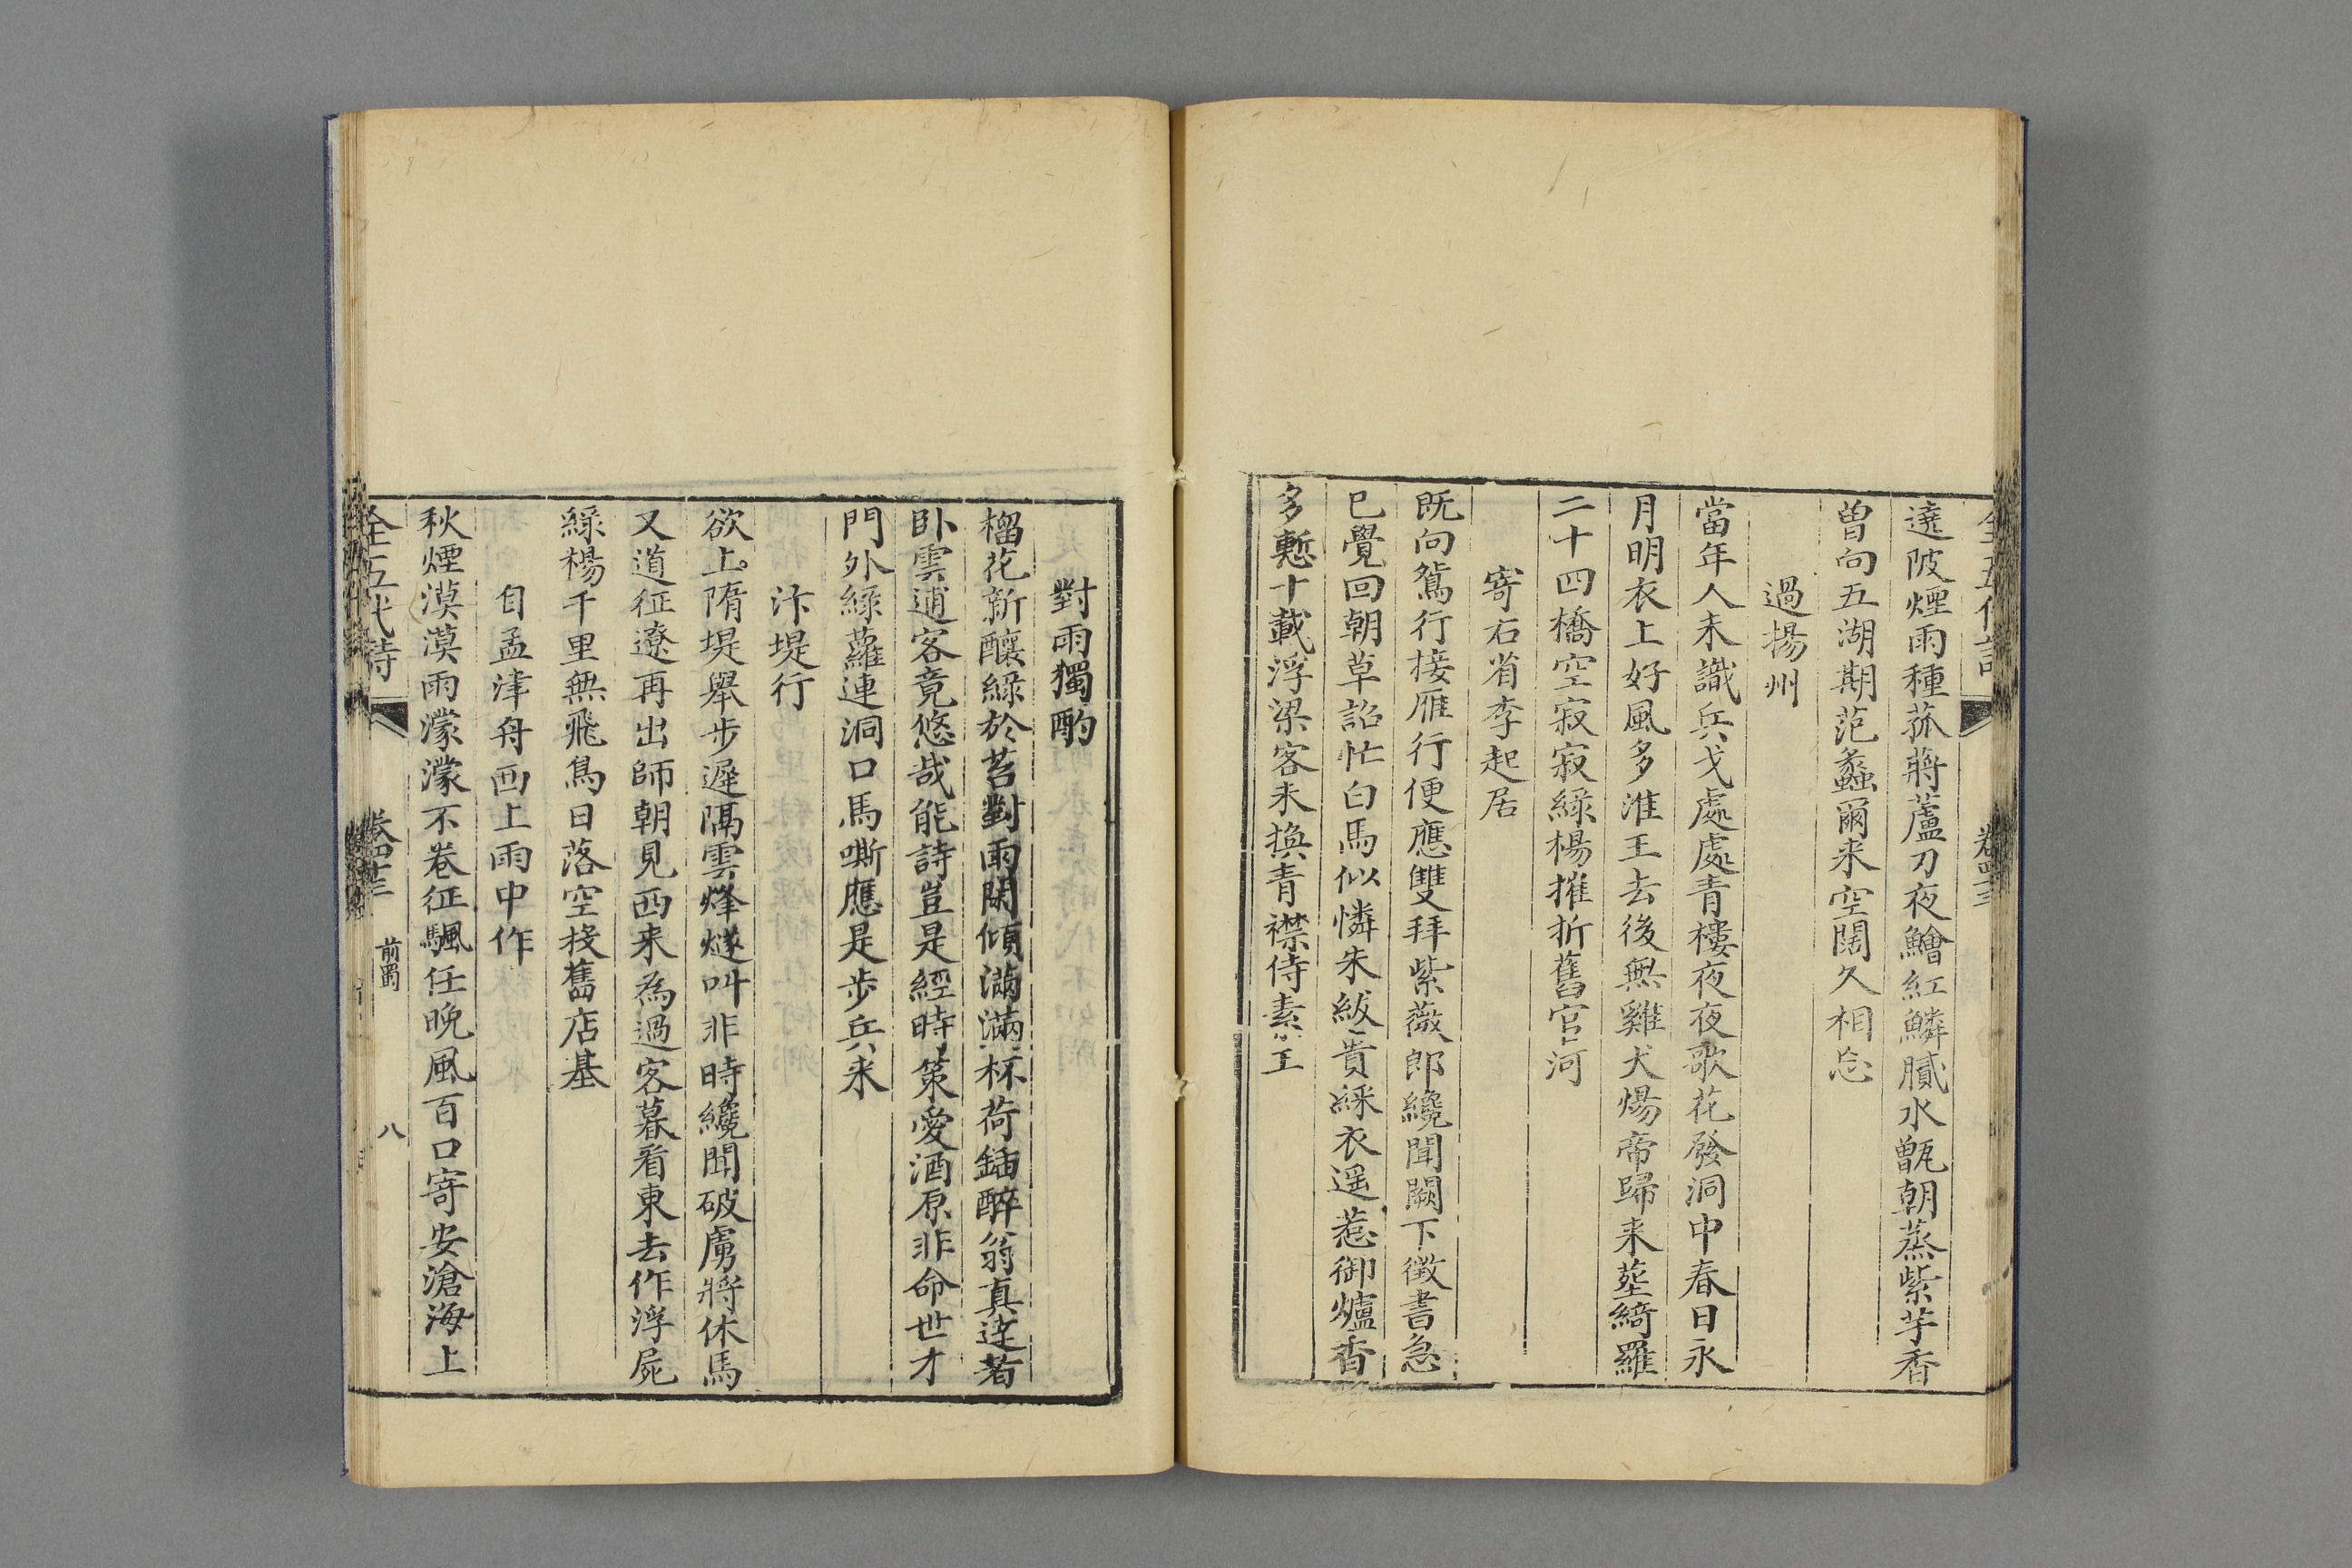 全五代詩
卷四十三
遶陂煙雨種菰蔣蘆刀夜鱠紅鱗膩水甑朝蒸紫芋香
曾向五湖期范蠡爾来空闊久相忘
過揚州
當年人未識兵戈處處青樓夜夜歌花發洞中春日永
月明衣上好風多淮王去後無雞犬煬帝歸来葬綺羅
二十四橋空寂寂綠楊摧折舊官河
寄右省李起居
既向鴛行接雁行便應雙拜紫薇郎纔聞闕下徵書急
已覺回朝草詔忙白馬似憐朱紱貴綵衣遥惹御爐香
多慙十載浮梁客未換青襟侍素王
對雨獨酌
榴花新釀綠於苔對雨閑傾滿滿杯荷鍤醉翁真達者
卧雲逋客竟悠哉能詩豈是經時策愛酒原非命世才
門外綠蘿連洞口馬嘶應是步兵来
汴堤行
欲上隋堤舉步遲隔雲烽燧叫非時纔聞破虜將休馬
又道征遼再出師朝見西来為過客暮看東去作浮屍
綠楊千里無飛鳥日落空投舊店基
自孟津舟西上雨中作
秋煙漠漠雨濛濛不卷征颿任晚風百口寄安滄海上
全五代詩
卷四十三
前蜀
八